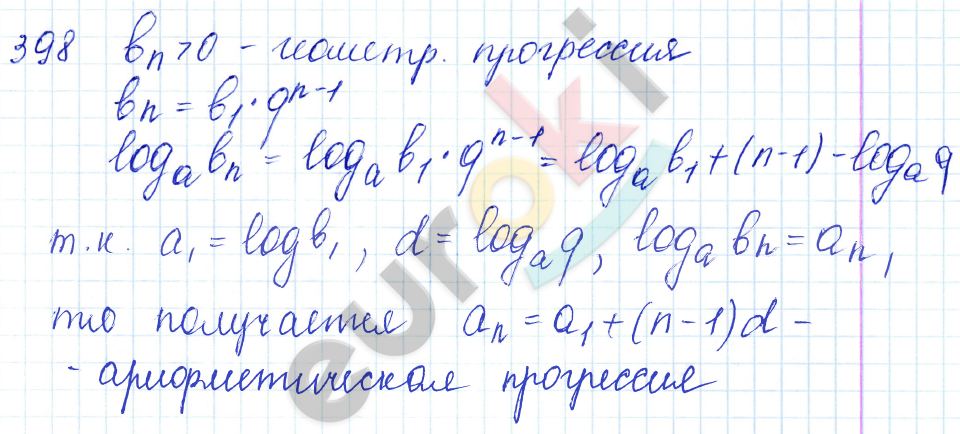 398 bₙ>0 - геометр. прогрессия
bₙ = b₁·qⁿ⁻¹
logₐbₙ = logₐb₁·qⁿ⁻¹ = logₐb₁+(n-1)-logₐq
т.к. a₁ = logb₁, d = logₐq, logₐbₙ = aₙ,
то получается aₙ = a₁+(n-1)d -
- арифметическая прогрессия
euroki